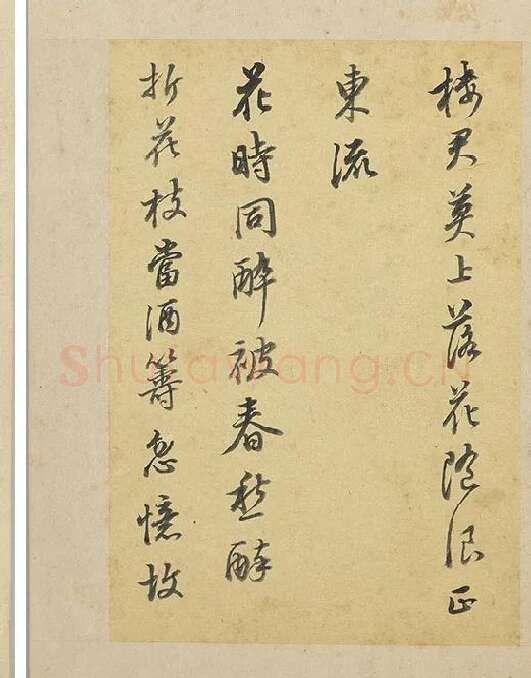 樓君莫上落花隨浪正
東流
花時同醉破春愁醉
折花枝當酒籌忽憶故
Shufawang.CN